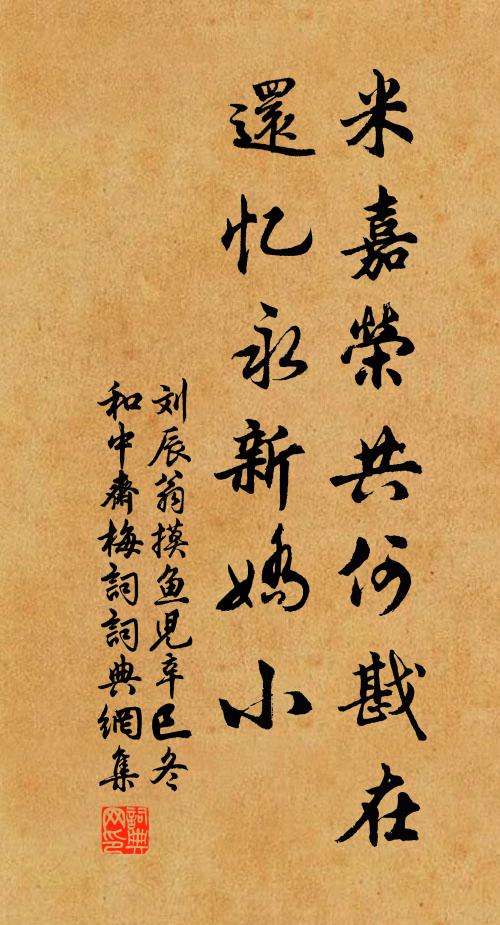 米嘉榮共何戡在
還忆永新嬌小
刘辰翁摸鱼児辛巳冬
和中齋梅詞詞典網集
詞典网印